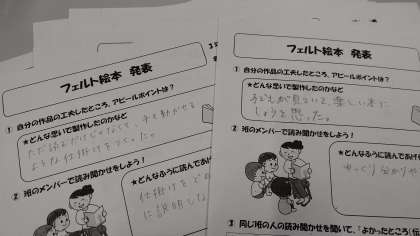 フェルト絵本 発表
① 自分の作品の工夫したところ、アピールポイントは?
★どんな思いで製作したのかなど
ただ読むだけじゃなくて、手を動かせる
ような仕掛けをつくった。
② 班のメンバーで読み聞かせをしよう!
★どんなふうに読んであげ
仕掛けを
に説明し
フェルト絵本 発表
① 自分の作品の工夫したところ、アピールポイントは?
★どんな思いで製作したのかなど
子どもが見ていて、楽しい本に
しようと思った。
② 班のメンバーで読み聞かせをしよう!
★どんなふうに読んであげ
ゆっくり分かりや
③ 同じ班の人の読み聞かせを聞いて、「よかったところ